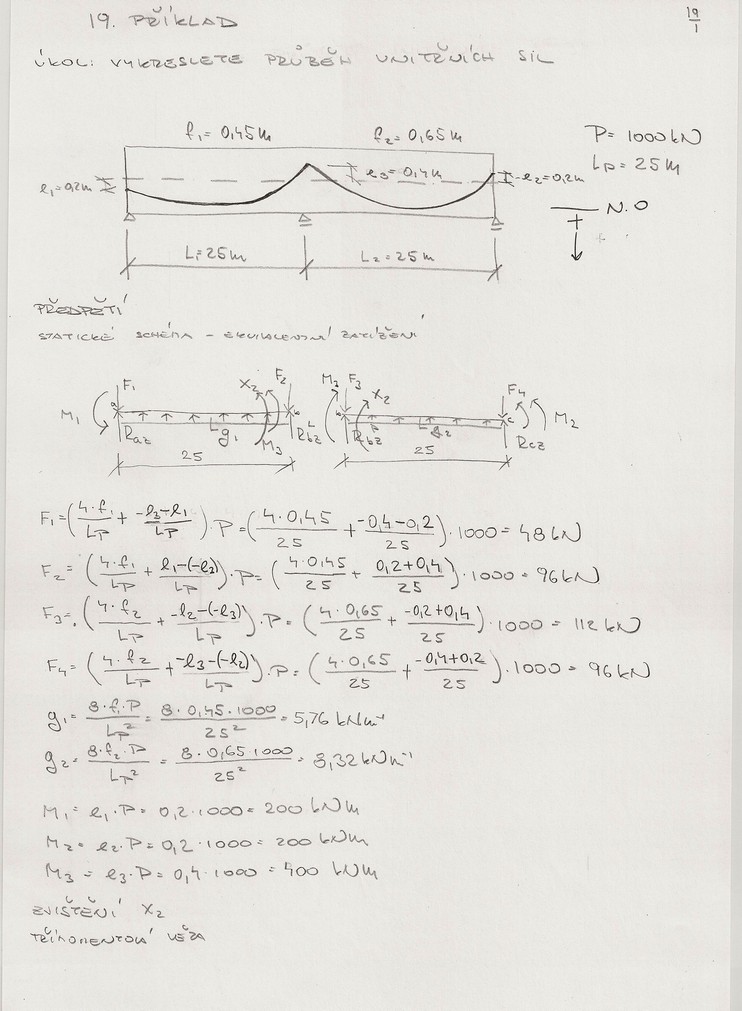 19. PŘÍKLAD
19/1
ÚKOL: VYKRESLETE PRŮBĚH VNITŘNÍCH SIL
f₁= 0,45m f₂= 0,65m
P= 1000kN
Lp= 25m
e₁=0,2m e₃=0,4m e₂=0,2m
N.O
+
L₁=25m L₂=25m
PŘEDPĚTÍ
STATICKÉ SCHÉMA - EKVIVALENTNÍ ZATÍŽENÍ
F₁ X₂ F₂ M₃ F₃ X₂ F₄
M₁ a b b c M₂
Raz g₁ M₃ Rbz L Rbz P g₂ Rcz
25 25
F₁=(4·f₁/Lp + -e₃-e₁/Lp)·P=(4·0,45/25 + -0,4-0,2/25)·1000= 48kN
F₂= (4·f₁/Lp + e₁-(-e₃)/Lp)·P= (4·0,45/25 + 0,2+0,4/25)·1000= 96kN
F₃= (4·f₂/Lp + -e₂-(-e₃)/Lp)·P= (4·0,65/25 + -0,2+0,4/25)·1000= 112kN
F₄= (4·f₂/Lp + -e₃-(-e₂)/Lp)·P= (4·0,65/25 + -0,4+0,2/25)·1000= 96kN
g₁= 8·f₁·P/Lp² = 8·0,45·1000/25² = 5,76 kNm⁻¹
g₂= 8·f₂·P/Lp² = 8·0,65·1000/25² = 8,32kNm⁻¹
M₁= e₁·P= 0,2·1000= 200kNm
M₂= e₂·P= 0,2·1000= 200kNm
M₃= e₃·P= 0,4·1000= 400 kNm
ZJIŠTĚNÍ X₂
TŘÍMOMENTOVÁ VĚTA